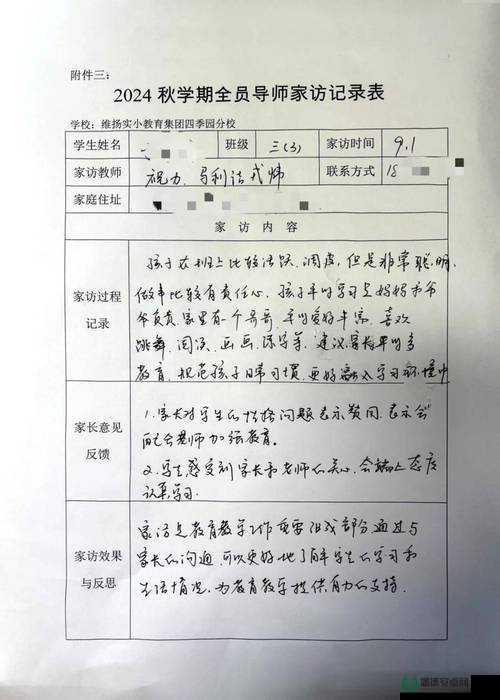 附件三：
2024 秋学期全员导师家访记录表
学校：维扬实小教育集团四季园分校
学生姓名 班级 三(3) 家访时间 9.1
家访教师 祝力、马利洁 联系方式 18
家庭住址
家 访 内 容
家访过程
记录
孩子在班上比较活跃、调皮，但是非常聪明，
做事比较有责任心，孩子平时学习是妈妈爷爷
负责，家里有一个哥哥，平时爱好丰富，喜欢
跳舞、阅读、画画、弹琴等，建议家长平时多
教育，规范孩子日常习惯，更好融入学习环境中
家长意见
反馈
1. 家长对学生的性格问题表示赞同，表示会
配合老师加强教育。
2. 学生感受到家长和老师的关心，会端正态度
认真学习.
家访效果
与反思
家访是教育教学工作重要组成部分通过与
家长的沟通，可以更好地了解学生的学习和
生活情况，为教育教学提供有力的支持.